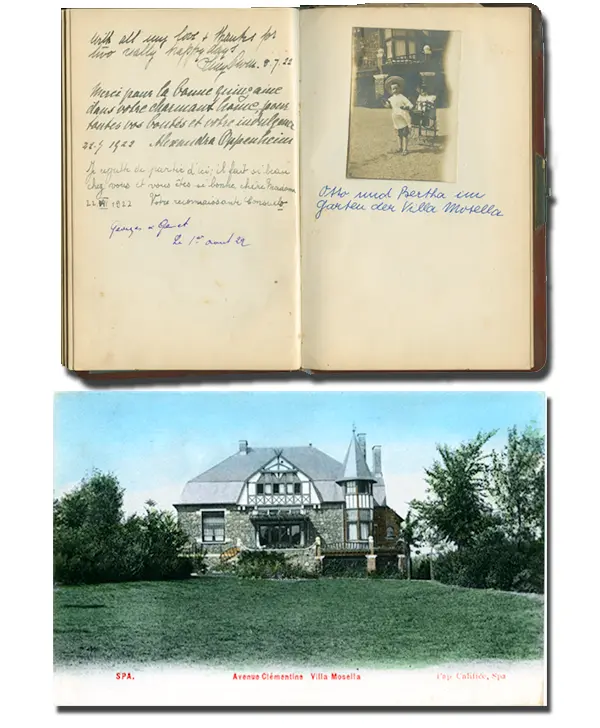 With all my love & thanks for
two really happy days
8.7.22
Merci pour la bonne quinzaine
dans votre charmant home, pour
toutes vos bontés et votre indulgence
22.7 1922 Alexandra Oppenheim
Je regrette de partir d'ici, il fait si beau
chez vous et vous êtes si bonne chère Madame
22 VII 1922 Votre reconnaissante
Georges
Le 1er août 22
Otto und Bertha im
Garten der Villa Mosella
SPA. Avenue Clémentine Villa Mosella Pap. Caldice, Spa